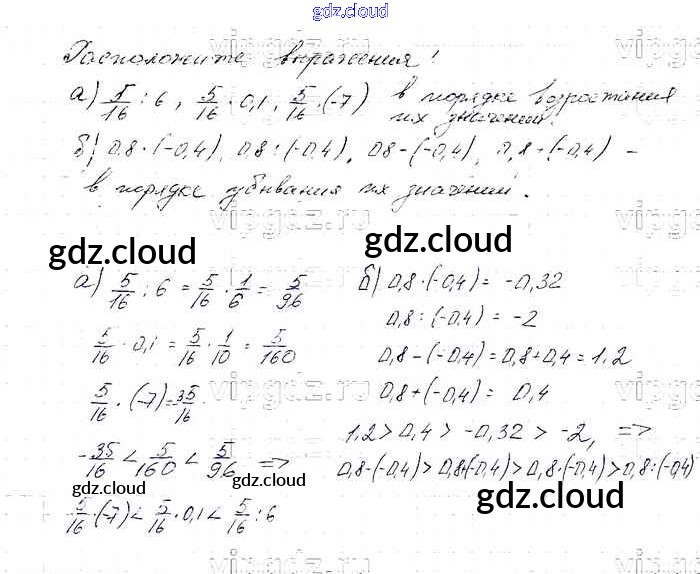 gdz.cloud
Расположите выражения!
а) 5/16 : 6, 5/16 · 0,1, 5/16 · (-7) в порядке возростания
их значений.
б) 0,8 · (-0,4), 0,8 : (-0,4), 0,8 - (-0,4), 0,8 + (-0,4) -
в порядке убывания их значений.
gdz.cloud gdz.cloud
а) 5/16 : 6 = 5/16 · 1/6 = 5/96
5/16 · 0,1 = 5/16 · 1/10 = 5/160
5/16 · (-7) = 35/16
-35/16 < 5/160 < 5/96 =>
gdz.cloud
5/16 · (-7) < 5/16 · 0,1 < 5/16 : 6
б) 0,8 · (-0,4) = -0,32
0,8 : (-0,4) = -2
0,8 - (-0,4) = 0,8 + 0,4 = 1,2
0,8 + (-0,4) = 0,4
1,2 > 0,4 > -0,32 > -2, =>
0,8 - (-0,4) > 0,8+(-0,4) > 0,8 · (-0,4) > 0,8 : (-0,4)
gdz.cloud
gdz.cloud
vipgdz.ru